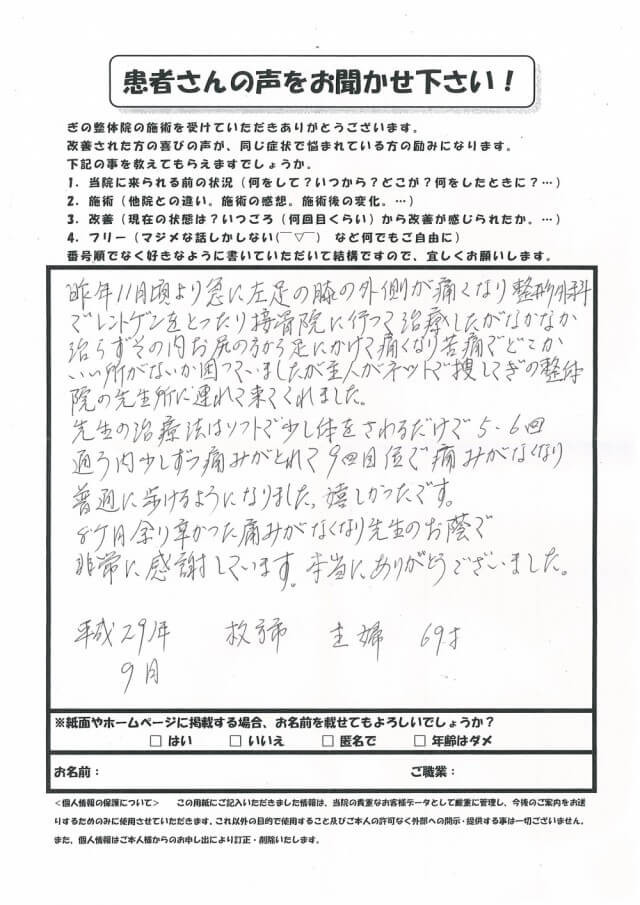 患者さんの声をお聞かせ下さい！
ぎの整体院の施術を受けていただきありがとうございます。
改善された方の喜びの声が、同じ症状で悩まれている方の励みになります。
下記の事を教えてもらえますでしょうか。
1．当院に来られる前の状況（何をして？いつから？どこが？何をしたときに？…）
2．施術（他院との違い。施術の感想。施術後の変化。…）
3．改善（現在の状態は？いつごろ（何回目くらい）から改善が感じられたか。…）
4．フリー（マジメな話しかしない(￣▽￣)　など何でもご自由に）
番号順でなく好きなように書いていただいて結構ですので、宜しくお願いします。
昨年11月頃より急に左足の膝の外側が痛くなり整形外科
でレントゲンをとったり接骨院に行って治療したがなかなか
治らずその内お尻の方から足にかけて痛くなり苦痛でどこか
いい所がないか困っていましたが主人がネットで捜してぎの整体
院の先生所に連れて来てくれました。
先生の治療法はソフトで少し体をさわるだけで5・6回
通う内少しずつ痛みがとれて9回目位で痛みがなくなり
普通に歩けるようになりました。嬉しかったです。
8ケ月余り辛かった痛みがなくなり先生のお蔭で
非常に感謝しています。本当にありがとうございました。
平成29年　枚方市　主婦　69才
9月
※紙面やホームページに掲載する場合、お名前を載せてもよろしいでしょうか？
□ はい　□ いいえ　□ 匿名で　□ 年齢はダメ
お名前：　ご職業：
＜個人情報の保護について＞　この用紙にご記入いただきました情報は、当院の貴重なお客様データとして厳重に管理し、今後のご案内をお送
りするためのみに使用させていただきます。これ以外の目的で使用すること及びご本人の許可なく外部への開示・提供する事は一切ございません。
また、個人情報はご本人様からのお申し出により訂正・削除いたします。